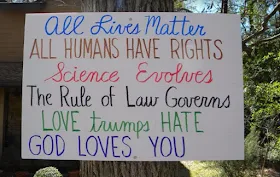 All Lives Matter
ALL HUMANS HAVE RIGHTS
Science Evolves
The Rule of Law Governs
LOVE trumps HATE
GOD LOVES YOU